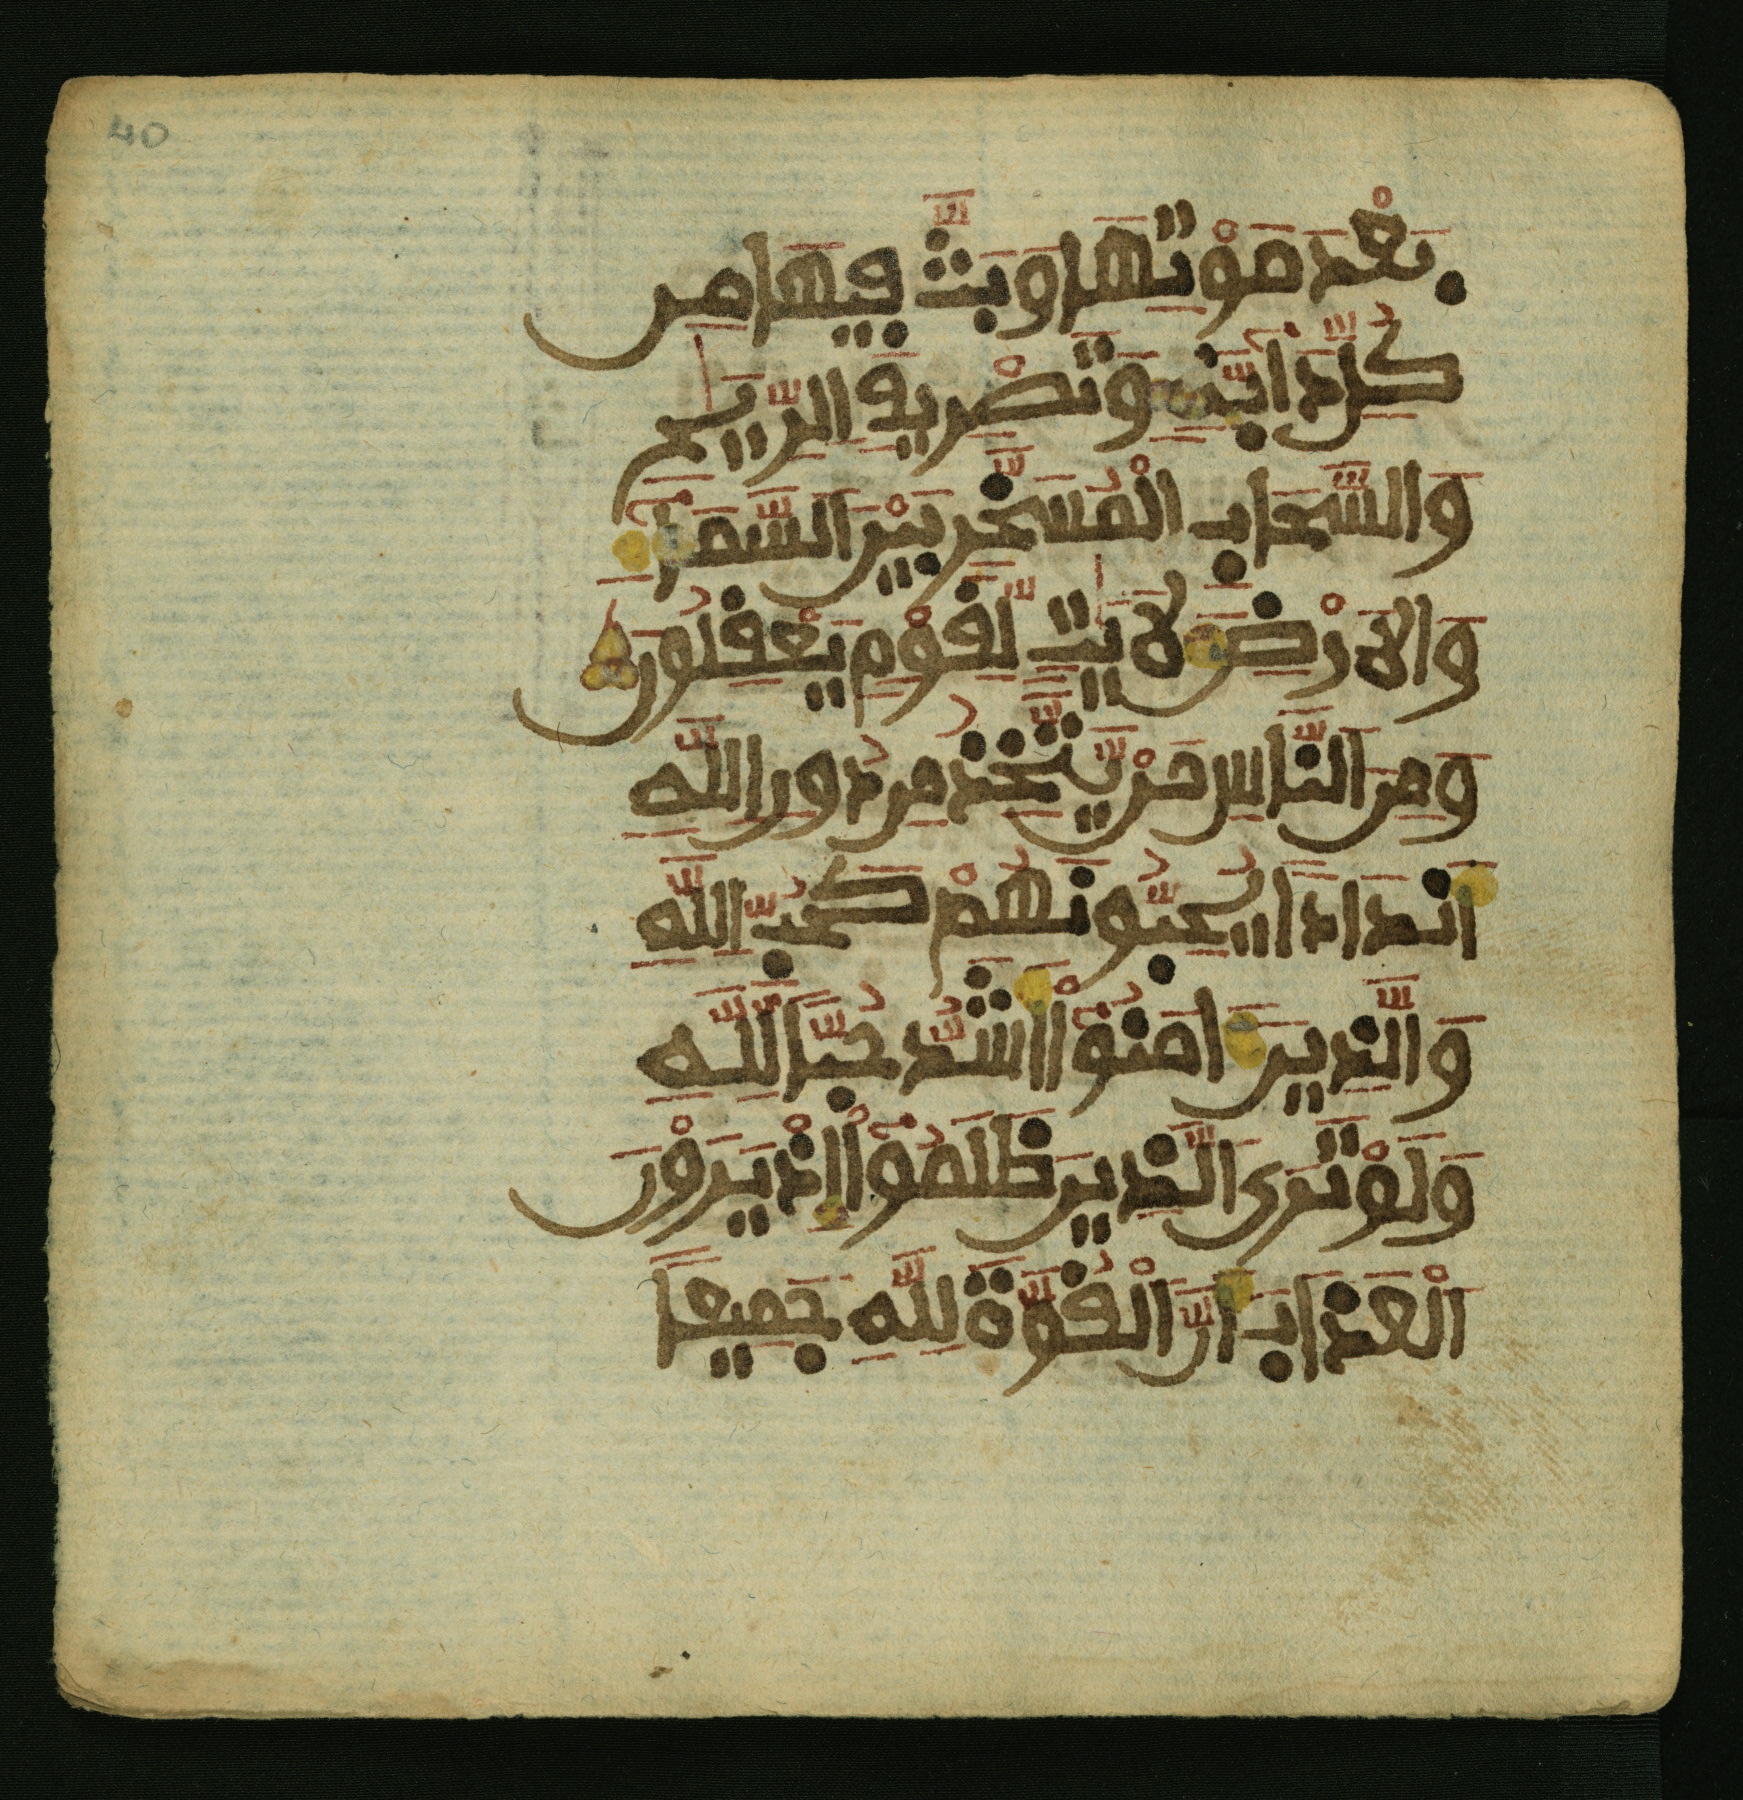 40
بَعْدَ مَوْتِهَا وَبَثَّ فِيهَا مِن
كُلِّ دَابَّةٍ وَتَصْرِيفِ الرِّيَٰحِ
وَالسَّحَابِ الْمُسَخَّرِ بَيْنَ السَّمَآءِ
وَالَارْضِ لَأيَٰتٍ لِّقَوْمٍ يَعْقِلُونَ
وَمِنَ النَّاسِ مَنْ يَّتَّخِذُ مِن دُونِ اللَّهِ
أَندَادًا يُحِبُّونَهُمْ كَحُبِّ اللَّهِ
وَالَّذِينَ ءَامَنُوٓاْ أَشَدُّ حُبًّا لِّلَّهِ
وَلَوْ تَرَى الَّذِينَ ظَلَمُوٓاْ إِذْ يَرَوْنَ
الْعَذَابَ أَنَّ الْقُوَّةَ لِلَّهِ جَمِيعًا